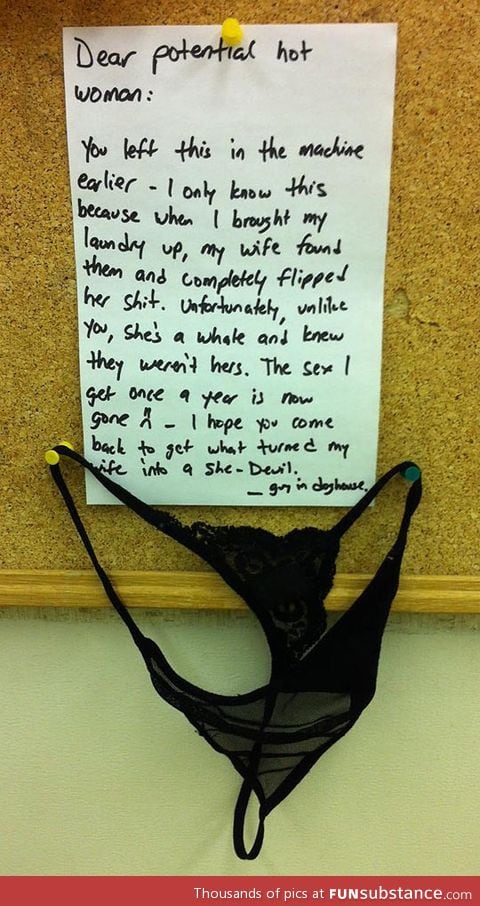 Dear potential hot
woman:
You left this in the machine
earlier - I only know this
because when I brought my
laundry up, my wife found
them and completely flipped
her shit. Unfortunately, unlike
you, she's a whale and knew
they weren't hers. The sex I
get once a year is now
gone :( - I hope you come
back to get what turned my
wife into a She-Devil.
— guy in doghouse.
Thousands of pics at FUNsubstance.com